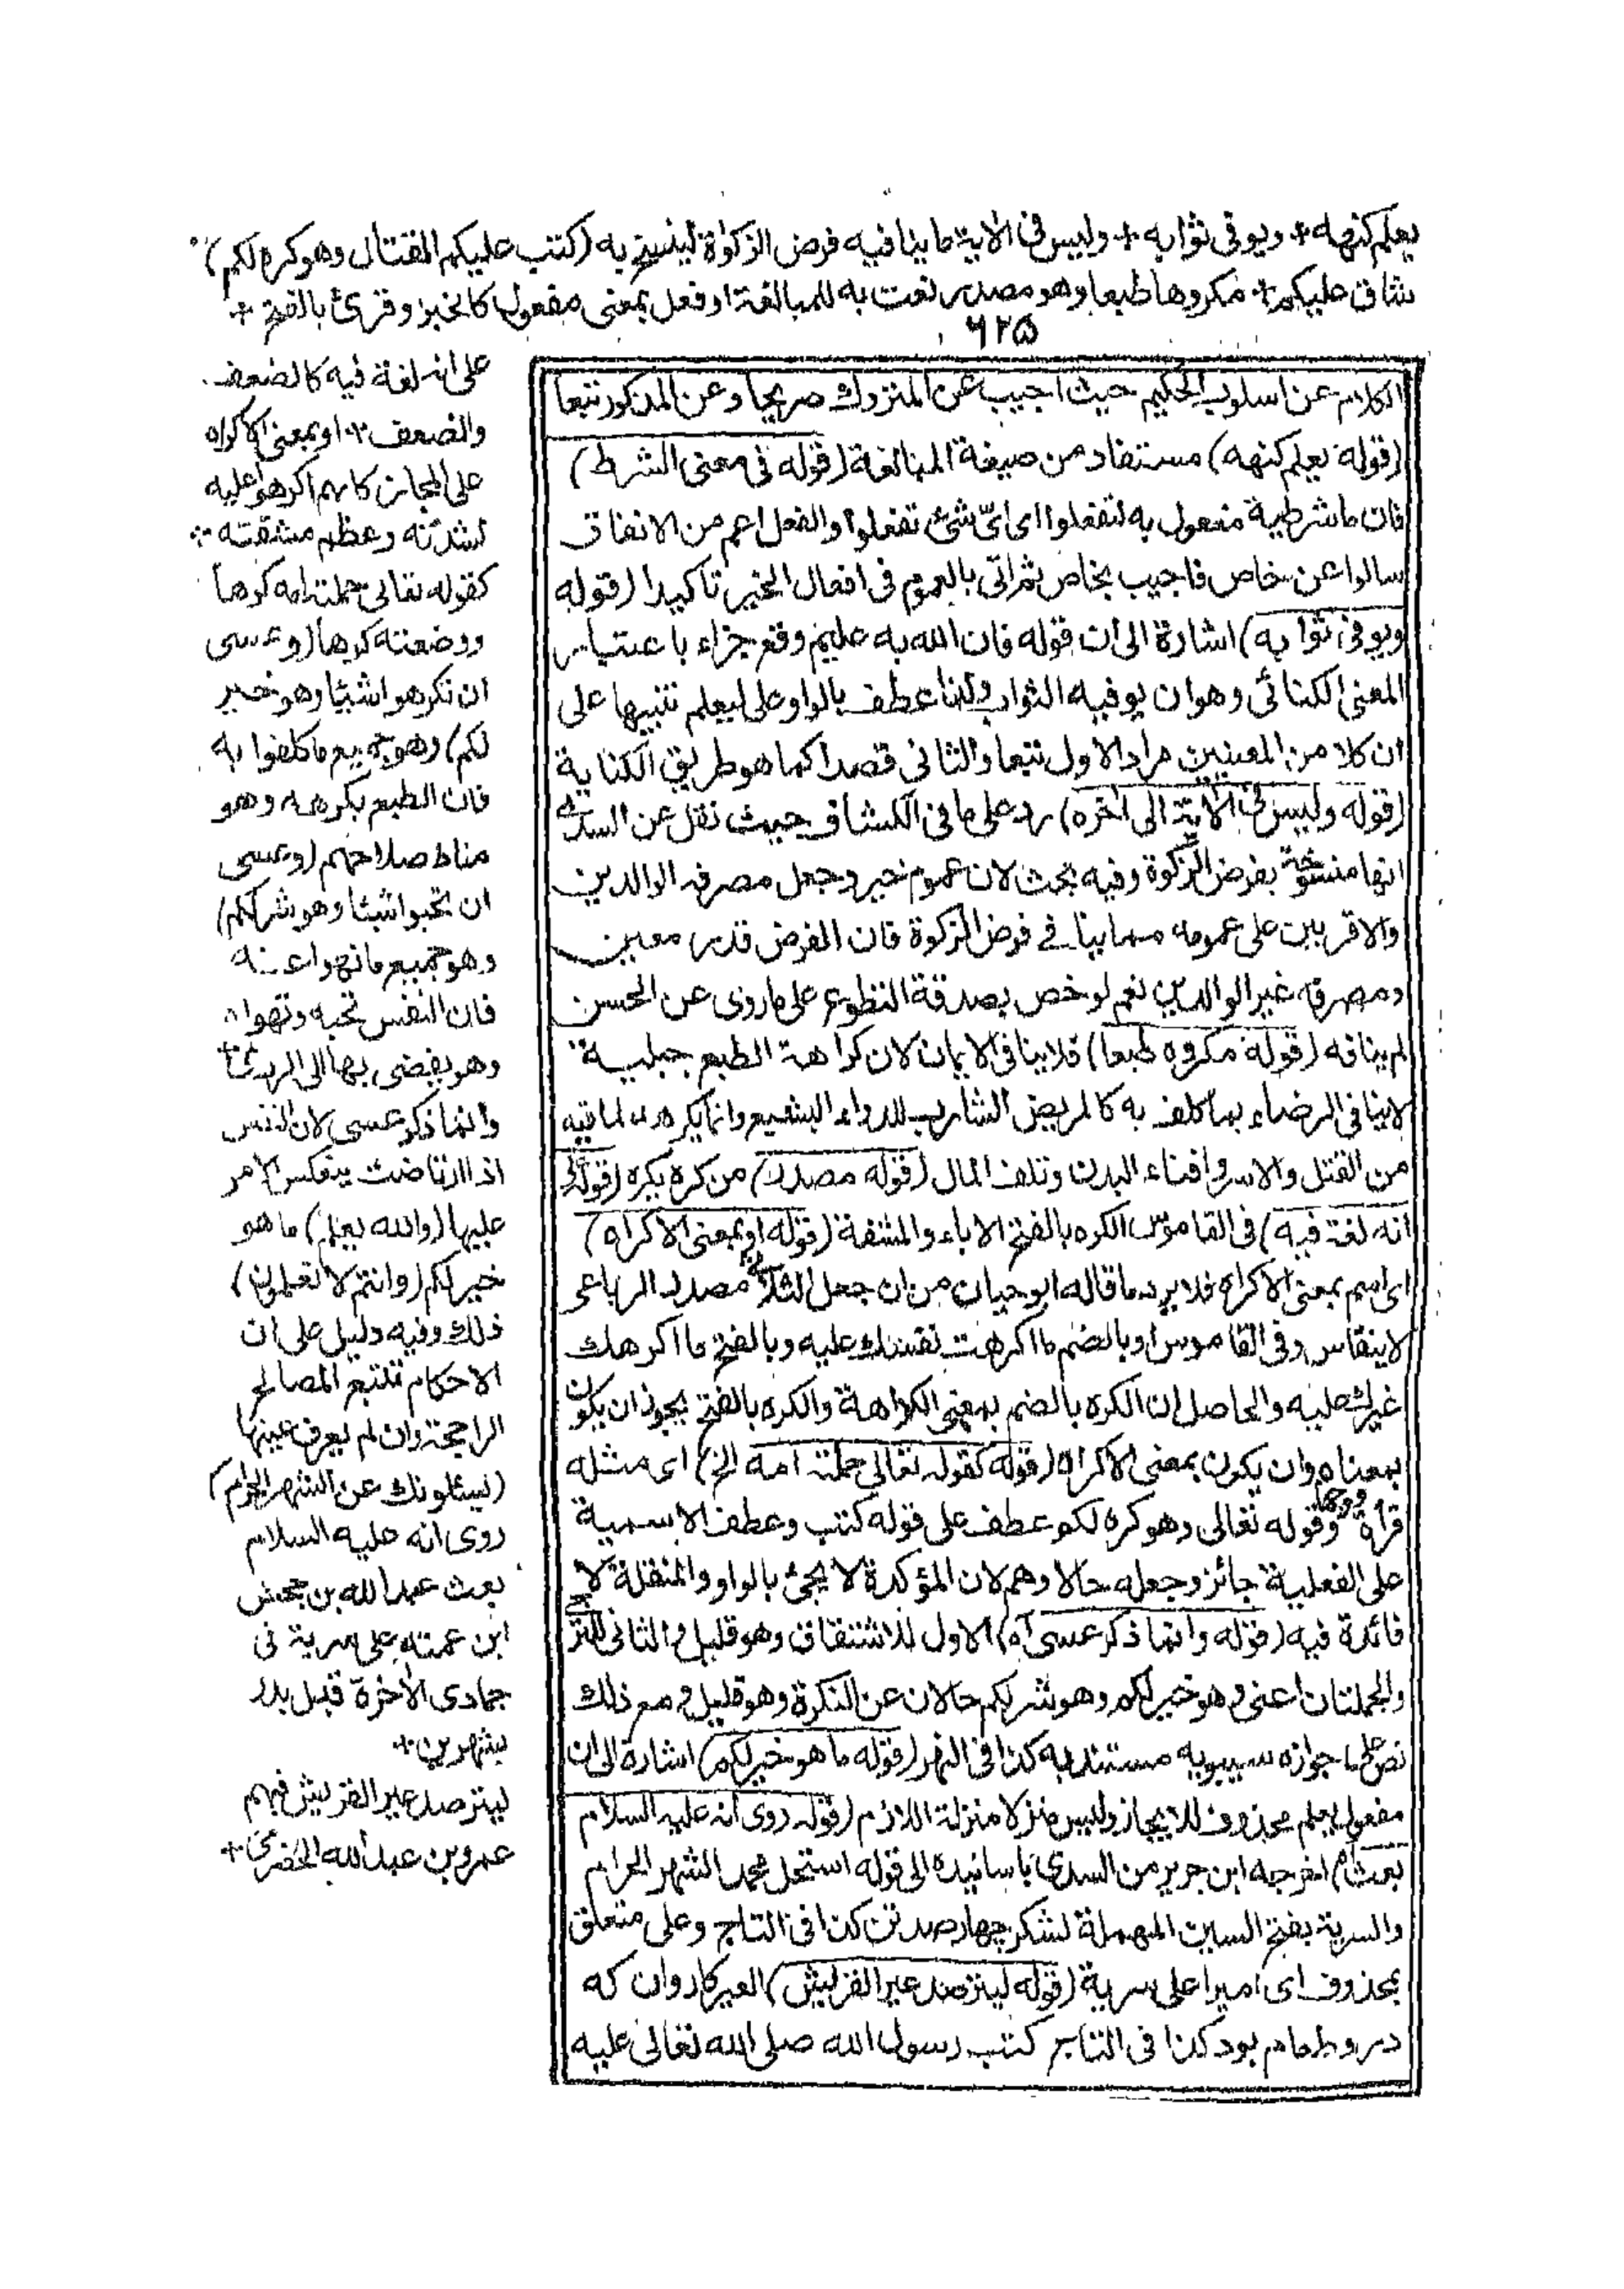 يعلم كنهه + ويوفى ثوابه + وليس فى الآية ما ينافيه فرض الزكوة لينسخ به (كتب عليكم القتال وهو كره لكم)
شاق عليكم + مكروها طبعا وهو مصدر نعت به للمبالغة او فعل بمعنى مفعول كالخبز وقرئ بالفتح +
٦٢٥
على انه لغة فيه كالضعف
والضعف + او بمعنى الاكراه
على المجاز كانهم اكرهوا عليه
لشدته وعظم مشقته
كقوله تعالى حملته امه كرها
ووضعته كرها (وعسى
ان تكرهوا شيئا وهو خير
لكم) وهو جميع ما كلفوا به
فان الطبع يكرهه وهو
مناط صلاحهم (وعسى
ان تحبوا شيئا وهو شر لكم)
وهو جميع ما نهوا عنه
فان النفس تحبه وتهواه
وهو يفضى بها الى الردى +
وانما ذكر عسى لان النفس
اذا ارتاضت ينعكس الامر
عليها (والله يعلم) ما هو
خير لكم (وانتم لا تعلمون)
ذلك وفيه دليل على ان
الاحكام تتبع المصالح
الراجحة وان لم يعرف عينها
(يسئلونك عن الشهر الحرام)
روى انه عليه السلام
بعث عبد الله بن جحش
ابن عمته على سرية فى
جمادى الآخرة قبل بدر
بشهرين +
ليترصد عير القريش فيهم
عمرو بن عبد الله الحضرمى +
الكلام عن اسلوب الحكيم حيث اجيب عن المتروك صريحا وعن المذكور تبعا
(قوله يعلم كنهه) مستفاد من صيغة المبالغة (قوله فى معنى الشرط)
فان ما شرطية مفعول به لتفعلوا اى اىّ شئ تفعلوا والفعل اعم من الانفاق
سالوا عن خاص فاجيب بخاص ثم اتى بالعموم فى افعال الخير تاكيدا (قوله
ويوفى ثوابه) اشارة الى ان قوله فان الله به عليم وقع جزاء باعتبار
المعنى الكنائى وهو ان يوفيه الثواب ولذا عطف بالواو على ليعلم تنبيها على
ان كلا من المعنيين مراد الاول تبعا والثانى قصدا كما هو طريق الكناية
(قوله وليس فى الآية الى آخره) رد على ما فى الكشاف حيث نقل عن السدى
انها منسوخة بفرض الزكوة وفيه بحث لان عموم خير وجعل مصرفه الوالدين
والاقربين على عمومه مما ينافى فرض الزكوة فان الفرض قدر معين
ومصرفه غير الوالدين نعم لو خص بصدقة التطوع على ما روى عن الحسن
لم ينافه (قوله مكروه طبعا) فلا ينافى الايمان لان كراهة الطبع جبلية
لا ينافى الرضاء بما كلف به كالمريض الشارب للدواء البشيع وانما يكرهه لما فيه
من القتل والاسر وافناء البدن وتلف المال (قوله مصدر) من كره يكره (قوله على
انه لغة فيه) فى القاموس الكره بالفتح الاباء والمشقة (قوله او بمعنى الاكراه)
اى اسم بمعنى الاكراه فلا يرد ما قاله ابو حيان من ان جعل الثلاثى مصدر الرباعى
لا ينقاس وفى القاموس او بالضم ما اكرهت نفسك عليه وبالفتح ما اكرهك
غيرك عليه والحاصل ان الكره بالضم بمعنى الكراهة والكره بالفتح يجوز ان يكون
بمعناه وان يكون بمعنى الاكراه (قوله كقوله تعالى حملته امه الخ) اى مثله
قراة ووجها وقوله تعالى وهو كره لكم عطف على قوله كتب وعطف الاسمية
على الفعلية جائز وجعله حالا وهم لان المؤكدة لا يجئ بالواو والمنتقلة لا
فائدة فيه (قوله وانما ذكر عسى آه) الاول للاشفاق وهو قليل والثانى للترجى
والجملتان اعنى وهو خير لكم وهو شر لكم حالان عن النكرة وهو قليل ومع ذلك
نص على جوازه سيبويه مستند به كذا فى النهر (قوله ما هو خير لكم) اشارة الى ان
مفعول يعلم محذوف للايجاز وليس منزلا منزلة اللازم (قوله روى انه عليه السلام
بعث آه) اخرجه ابن جرير من السدى باسانيده الى قوله استحل محمد الشهر الحرام
والسرية بفتح السين المهملة لشكر چهار صد تن كذا فى التاج وعلى متعلق
بمحذوف اى اميرا على سرية (قوله ليترصد عير القريش) العير كاروان كه
درو طعام بود كذا فى التاج كتب رسول الله صلى الله تعالى عليه